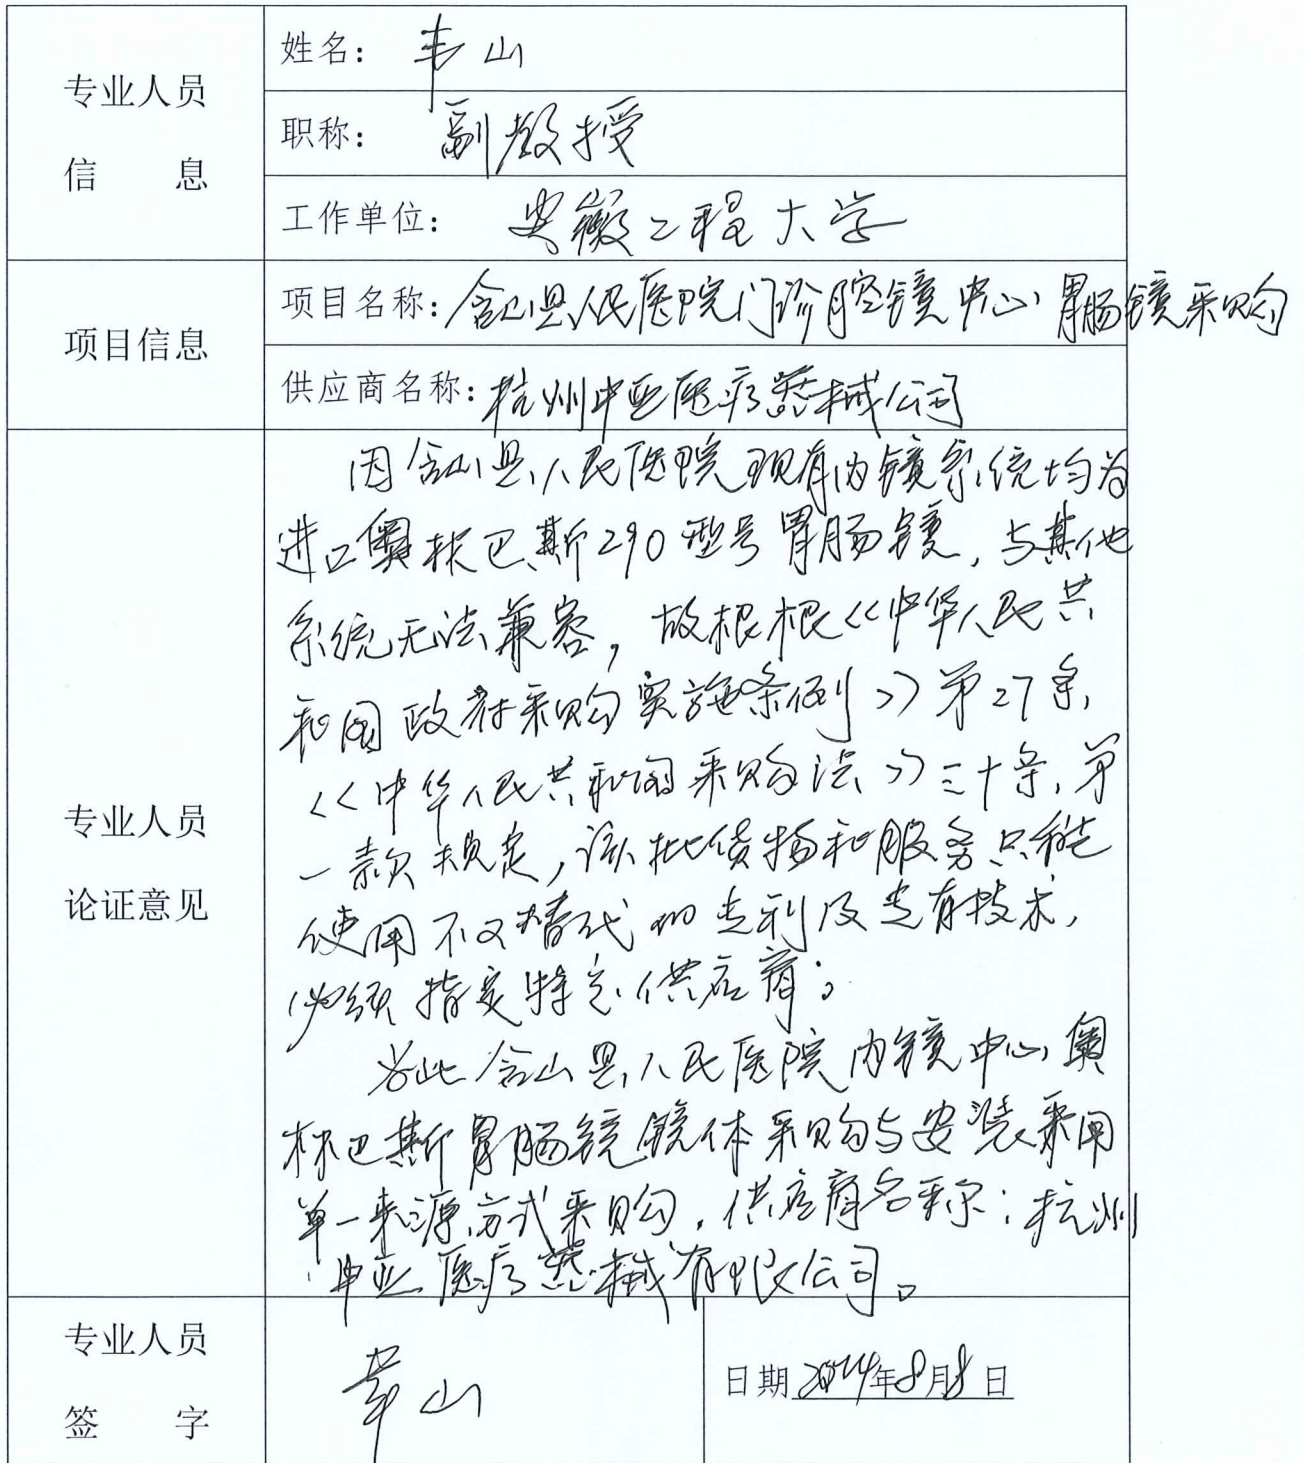 专业人员
信 息
姓名: 韦山
职称: 副教授
工作单位: 安徽工程大学
项目信息
项目名称: 含山县人民医院门诊腔镜中心胃肠镜采购
供应商名称: 杭州中亚医疗器械公司
专业人员
论证意见
因含山县人民医院现有内镜系统均为
进口奥林巴斯290型号胃肠镜,与其他
系统无法兼容,故根根《中华人民共
和国政府采购实施条例》第27条,
《中华人民共和国采购法》三十条,第
一款规定,该批货物和服务只能
使用不可替代的专利及专有技术,
必须指定特定供应商;
为此含山县人民医院内镜中心奥
林巴斯胃肠镜镜体采购与安装采用
单一来源方式采购,供应商名称:杭州
中亚医疗器械有限公司。
专业人员
签 字
韦山
日期2024年8月8日